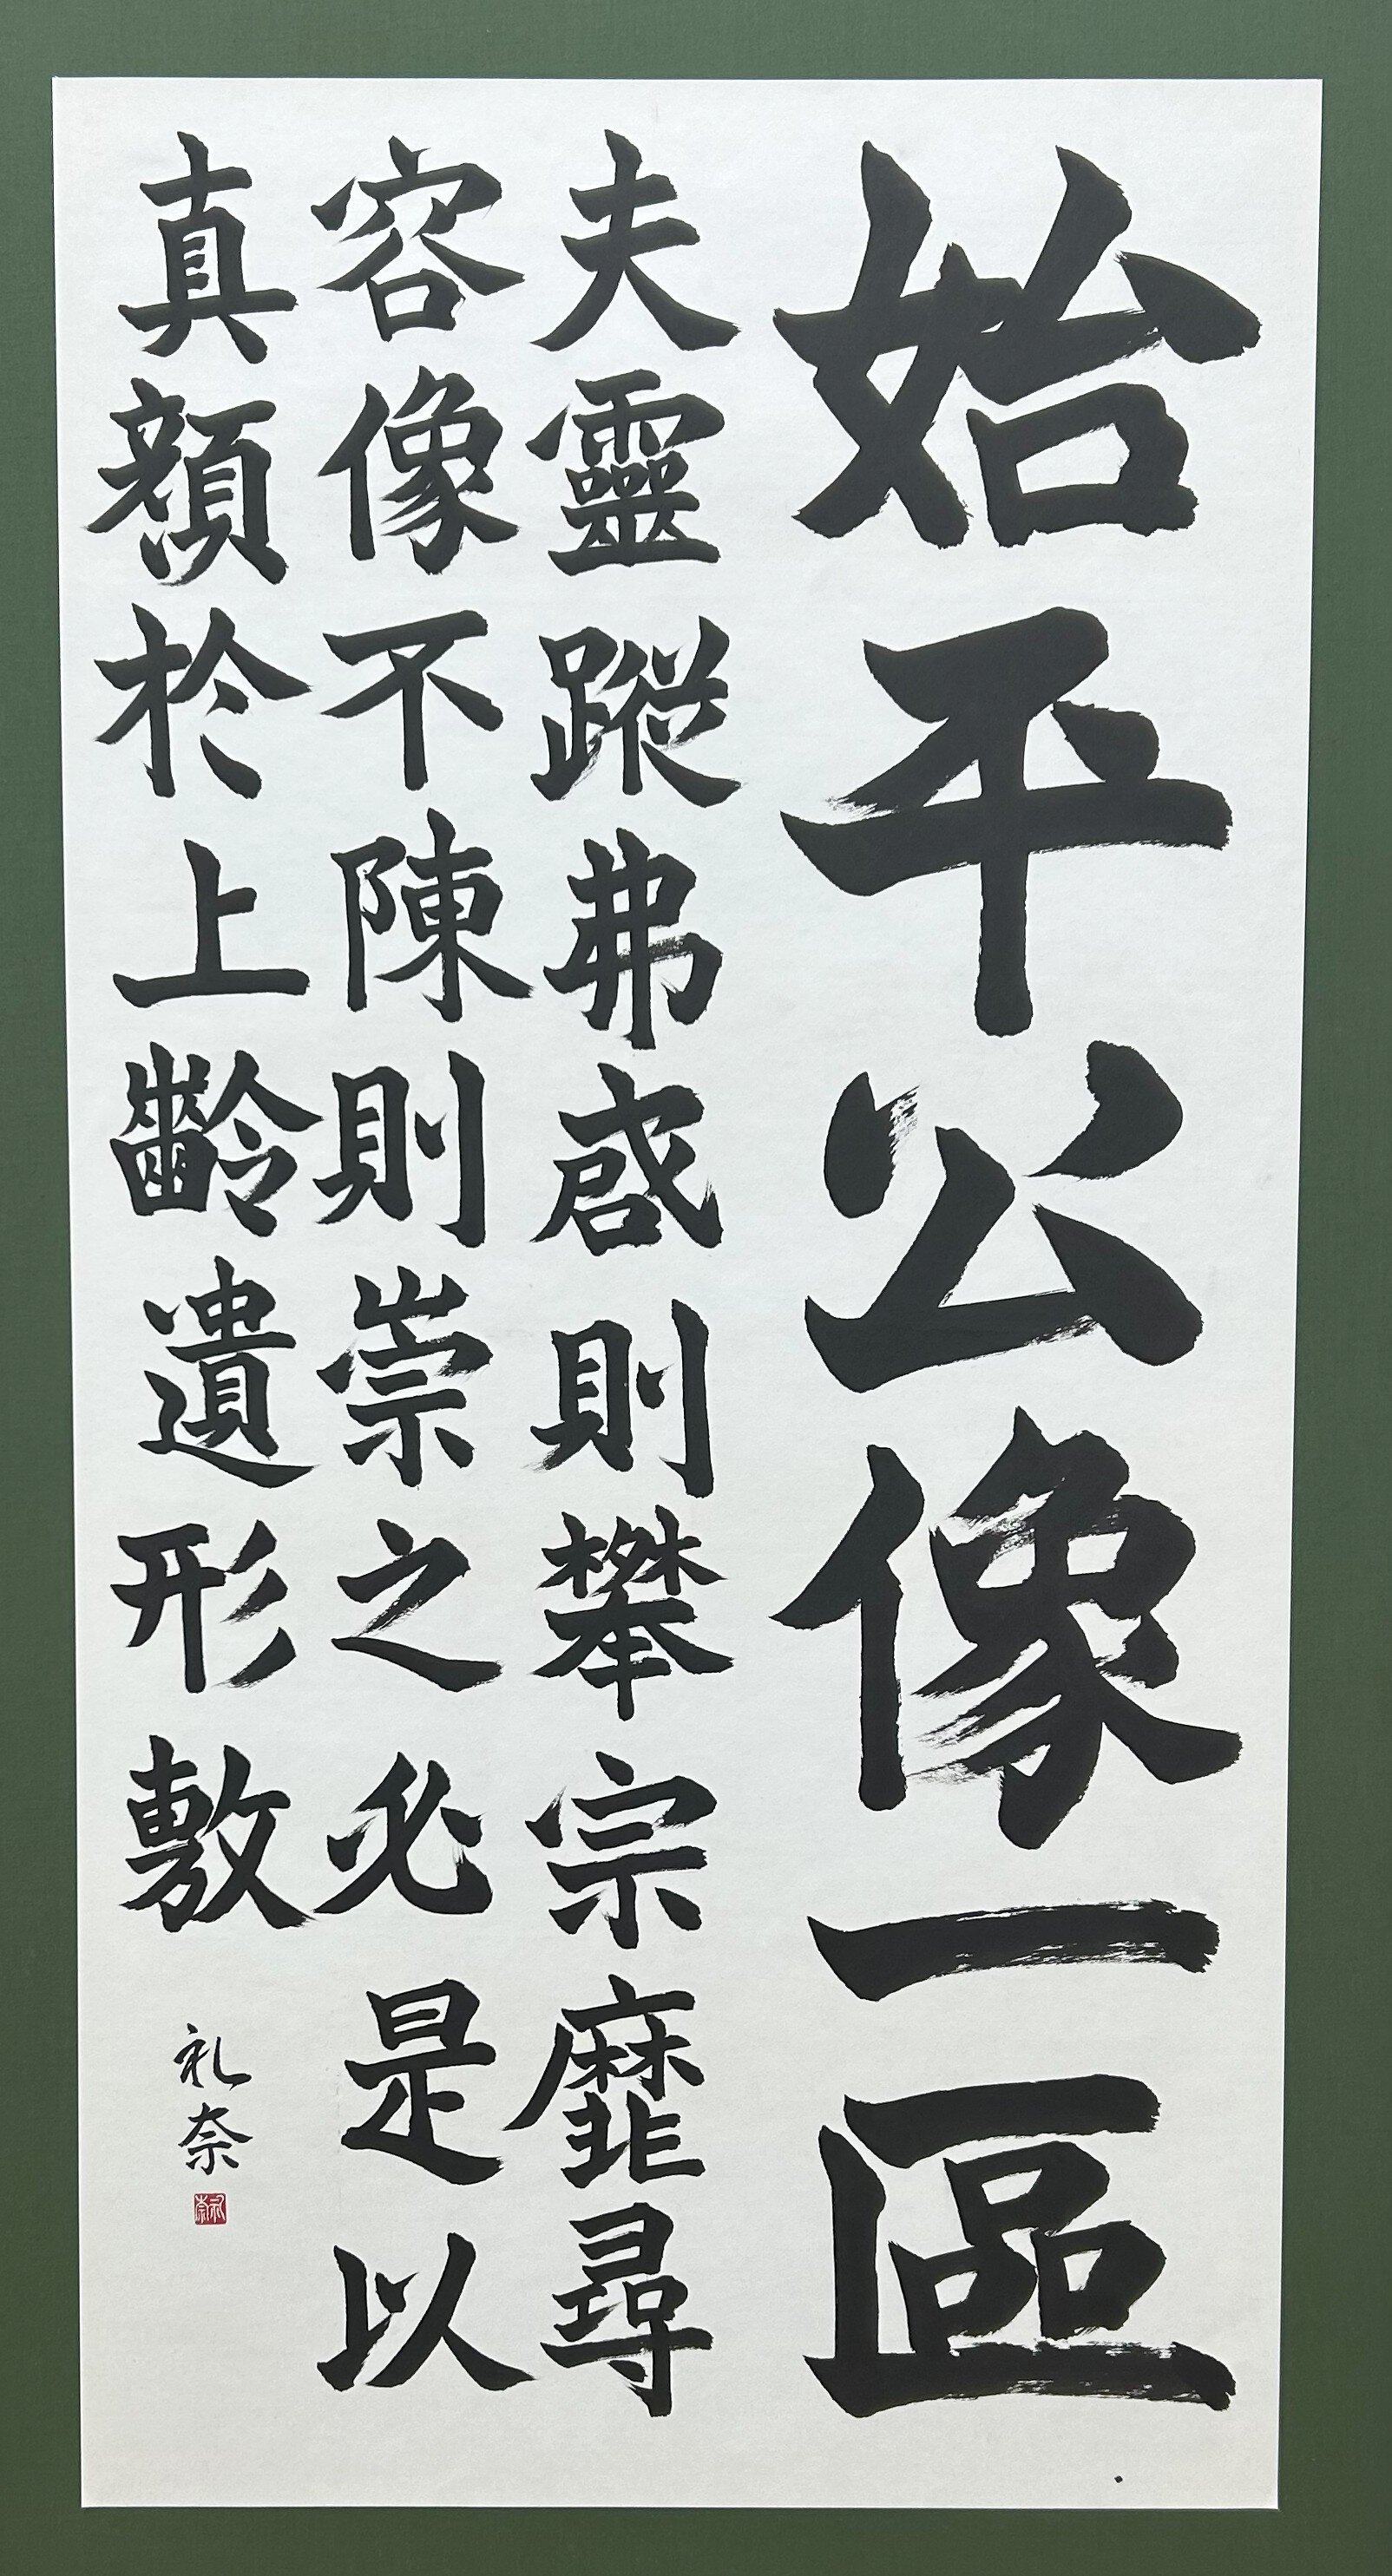 始平公像一區
夫靈蹤弗啓則攀宗靡尋
容像不陳則崇之必是以
真顏於上齡遺形敷
礼奈